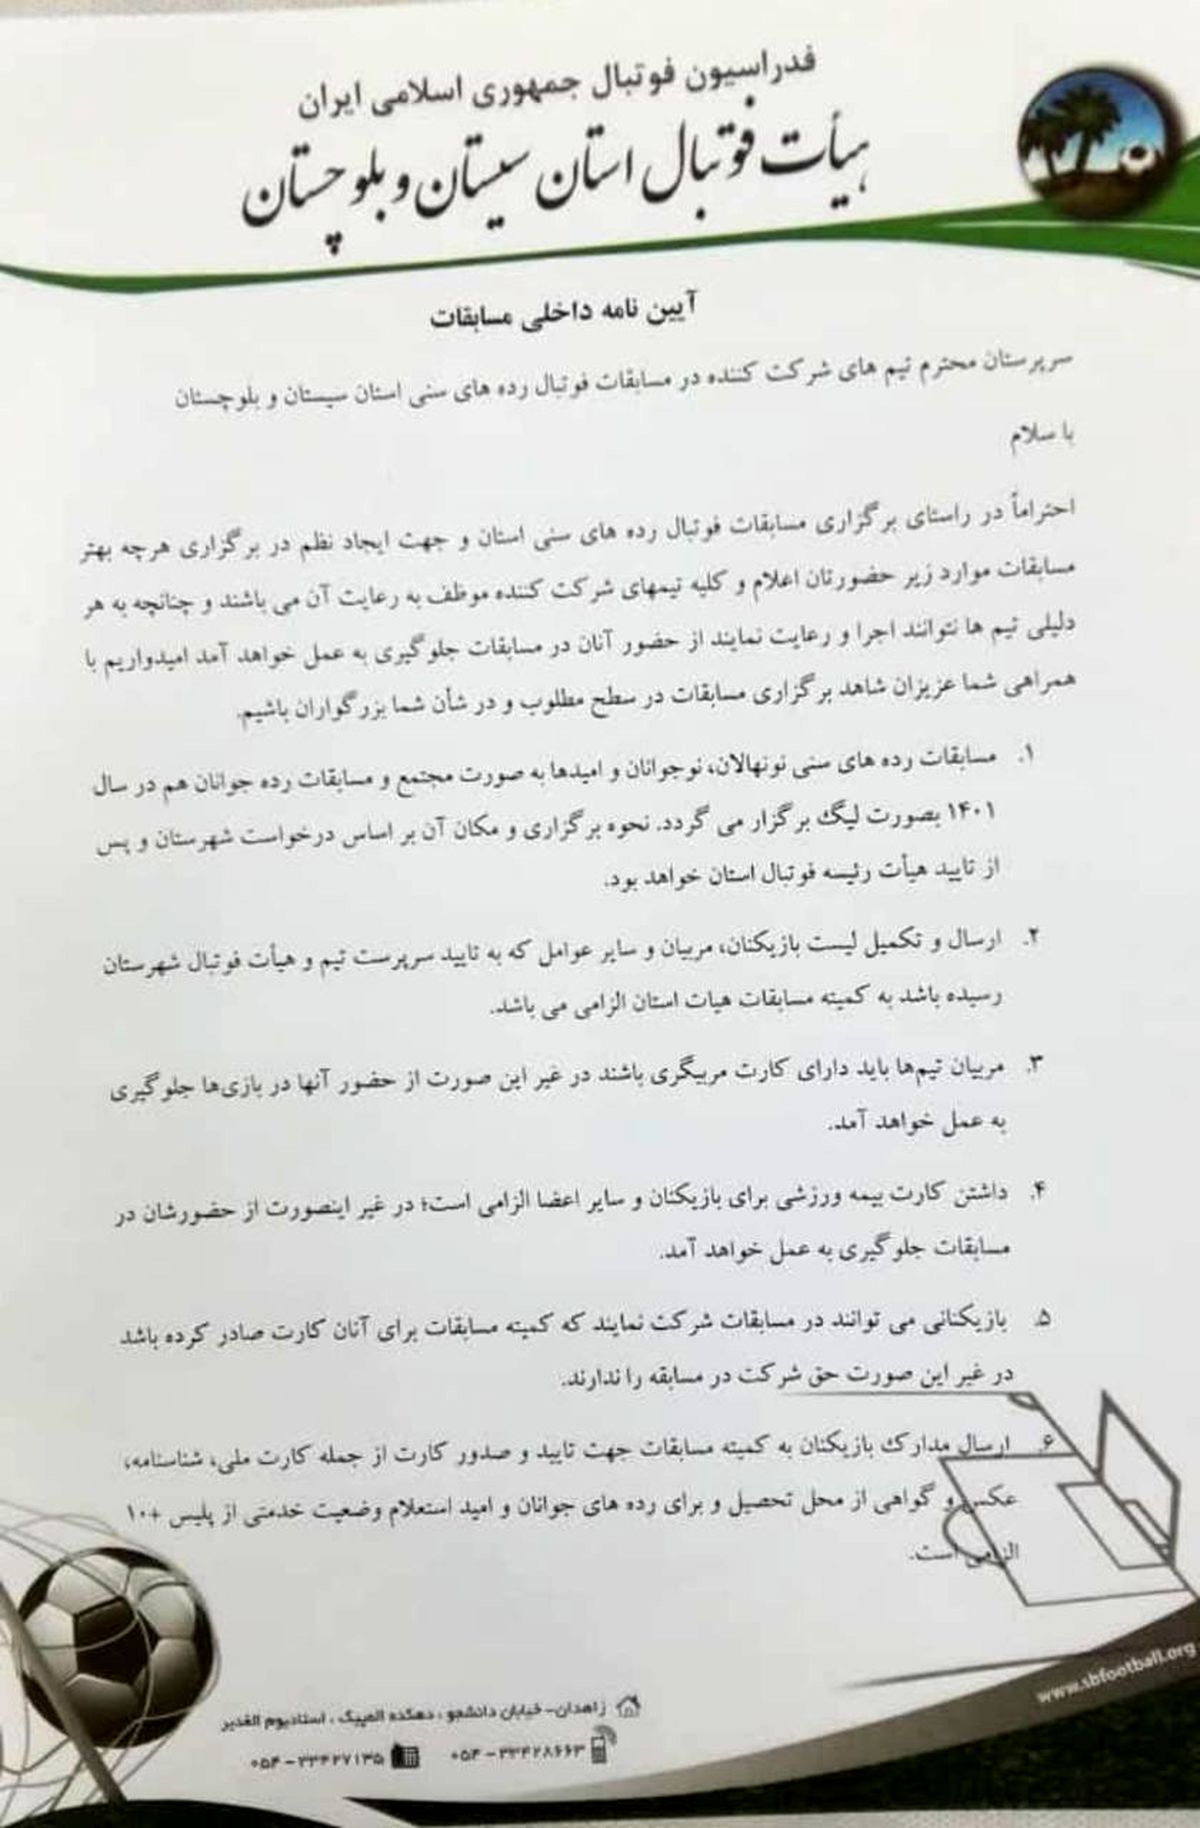 فدراسیون فوتبال جمهوری اسلامی ایران
هیأت فوتبال استان سیستان و بلوچستان
آیین نامه داخلی مسابقات
سرپرستان محترم تیم های شرکت کننده در مسابقات فوتبال رده های سنی استان سیستان و بلوچستان
با سلام
احتراماً در راستای برگزاری مسابقات فوتبال رده های سنی استان و جهت ایجاد نظم در برگزاری هرچه بهتر
مسابقات موارد زیر حضورتان اعلام و کلیه تیمهای شرکت کننده موظف به رعایت آن می باشند و چنانچه به هر
دلیلی تیم ها نتوانند اجرا و رعایت نمایند از حضور آنان در مسابقات جلوگیری به عمل خواهد آمد امیدواریم با
همراهی شما عزیزان شاهد برگزاری مسابقات در سطح مطلوب و در شأن شما بزرگواران باشیم.
۱. مسابقات رده های سنی نونهالان، نوجوانان و امیدها به صورت مجتمع و مسابقات رده جوانان هم در سال
۱۴۰۱ بصورت لیگ برگزار می گردد. نحوه برگزاری و مکان آن بر اساس درخواست شهرستان و پس
از تایید هیأت رئیسه فوتبال استان خواهد بود.
۲. ارسال و تکمیل لیست بازیکنان، مربیان و سایر عوامل که به تایید سرپرست تیم و هیأت فوتبال شهرستان
رسیده باشد به کمیته مسابقات هیات استان الزامی می باشد.
۳. مربیان تیم‌ها باید دارای کارت مربیگری باشند در غیر این صورت از حضور آنها در بازی‌ها جلوگیری
به عمل خواهد آمد.
۴. داشتن کارت بیمه ورزشی برای بازیکنان و سایر اعضا الزامی است؛ در غیر اینصورت از حضورشان در
مسابقات جلوگیری به عمل خواهد آمد.
۵. بازیکنانی می توانند در مسابقات شرکت نمایند که کمیته مسابقات برای آنان کارت صادر کرده باشد
در غیر این صورت حق شرکت در مسابقه را ندارند.
۶. ارسال مدارک بازیکنان به کمیته مسابقات جهت تایید و صدور کارت از جمله کارت ملی، شناسنامه،
عکس و گواهی از محل تحصیل و برای رده های جوانان و امید استعلام وضعیت خدمتی از پلیس +۱۰
الزامی است.
www.sbfootball.org
زاهدان- خیابان دانشجو ، دهکده المپیک ، استادیوم الغدیر
۰۵۴ - ۳۳۴۲۸۶۶۳ ۰۵۴ - ۳۳۴۲۷۱۳۵